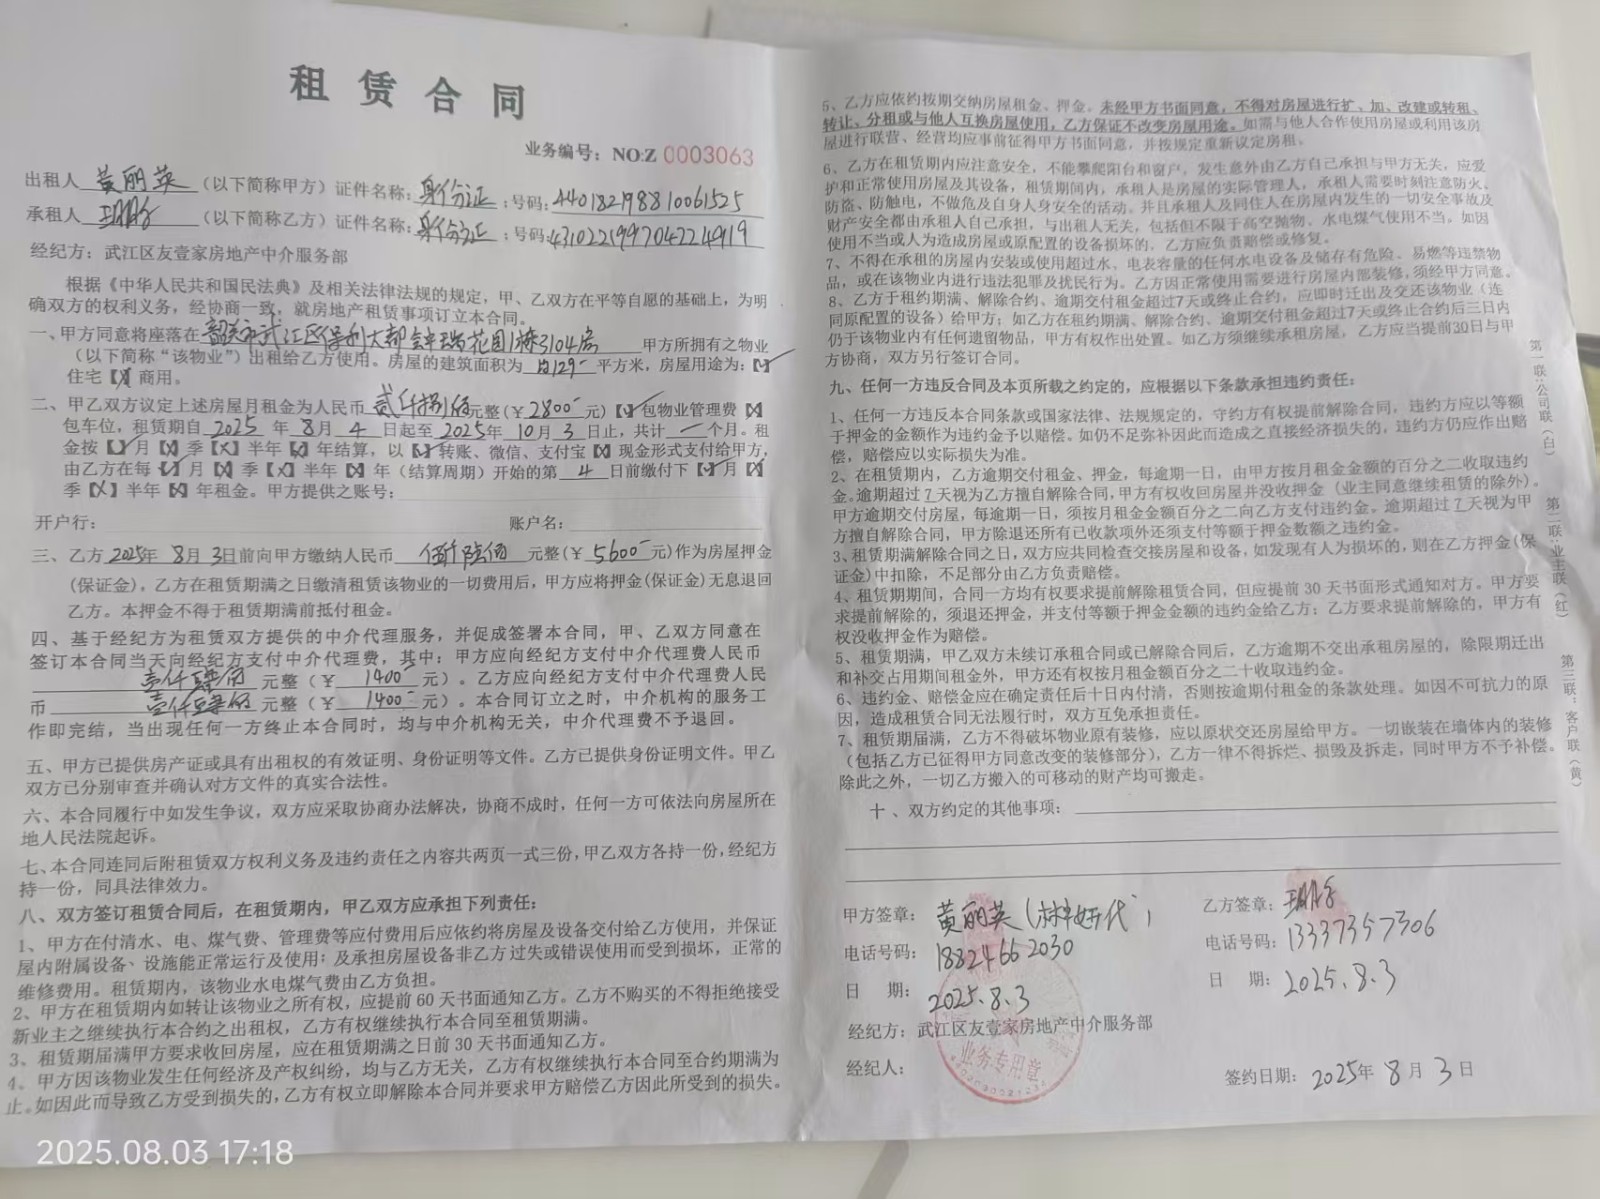 租赁合同
业务编号：NO:Z 0003063
出租人 黄丽英 （以下简称甲方）证件名称：身份证：号码：440182198810061525
承租人 （以下简称乙方）证件名称：身份证：号码：431022199704224919
经纪方：武江区友壹家房地产中介服务部
根据《中华人民共和国民法典》及相关法律法规的规定，甲、乙双方在平等自愿的基础上，为明
确双方的权利义务，经协商一致，就房地产租赁事项订立本合同。
一、甲方同意将座落在 韶关市武江区保利大都会丰瑞花园1栋3104房 甲方所拥有之物业
（以下简称“该物业”）出租给乙方使用。房屋的建筑面积为 约129 平方米，房屋用途为：【✓】
住宅【X】商用。
二、甲乙双方议定上述房屋月租金为人民币 贰仟捌佰 元整（¥ 2800 元）【✓】包物业管理费【X】
包车位，租赁期自 2025 年 8月 4 日起至 2025年 10月 3日止，共计 个月。租
金按【✓】月【X】季【X】半年【X】年结算，以【✓】转账、微信、支付宝【X】现金形式支付给甲方，
由乙方在每【✓】月【X】季【X】半年【X】年（结算周期）开始的第 4 日前缴付下【✓】月【X】
季【X】半年【X】年租金。甲方提供之账号：
开户行： 账户名：
三、乙方 2025年 8月 3日前向甲方缴纳人民币 伍仟陆佰 元整（¥ 5600 元）作为房屋押金
（保证金），乙方在租赁期满之日缴清租赁该物业的一切费用后，甲方应将押金（保证金）无息退回
乙方。本押金不得于租赁期满前抵付租金。
四、基于经纪方为租赁双方提供的中介代理服务，并促成签署本合同，甲、乙双方同意在
签订本合同当天向经纪方支付中介代理费，其中：甲方应向经纪方支付中介代理费人民币
壹仟肆佰 元整（¥ 1400 元）。乙方应向经纪方支付中介代理费人民
币 壹仟肆佰 元整（¥ 1400 元）。本合同订立之时，中介机构的服务工
作即完结，当出现任何一方终止本合同时，均与中介机构无关，中介代理费不予退回。
五、甲方已提供房产证或具有出租权的有效证明、身份证明等文件。乙方已提供身份证明文件。甲乙
双方已分别审查并确认对方文件的真实合法性。
六、本合同履行中如发生争议，双方应采取协商办法解决，协商不成时，任何一方可依法向房屋所在
地人民法院起诉。
七、本合同连同后附租赁双方权利义务及违约责任之内容共两页一式三份，甲乙双方各持一份，经纪方
持一份，同具法律效力。
八、双方签订租赁合同后，在租赁期内，甲乙双方应承担下列责任：
1、甲方在付清水、电、煤气费、管理费等应付费用后应依约将房屋及设备交付给乙方使用，并保证
屋内附属设备、设施能正常运行及使用；及承担房屋设备非乙方过失或错误使用而受到损坏，正常的
维修费用。租赁期内，该物业水电煤气费由乙方负担。
2、甲方在租赁期内如转让该物业之所有权，应提前 60 天书面通知乙方。乙方不购买的不得拒绝接受
新业主之继续执行本合约之出租权，乙方有权继续执行本合同至租赁期满。
3、租赁期届满甲方要求收回房屋，应在租赁期满之日前 30 天书面通知乙方。
4、甲方因该物业发生任何经济及产权纠纷，均与乙方无关，乙方有权继续执行本合同至合约期满为
止。如因此而导致乙方受到损失的，乙方有权立即解除本合同并要求甲方赔偿乙方因此所受到的损失。
2025.08.03 17:18
5、乙方应依约按期交纳房屋租金、押金。未经甲方书面同意，不得对房屋进行扩、加、改建或转租、
转让、分租或与他人互换房屋使用，乙方保证不改变房屋用途。如需与他人合作使用房屋或利用该房
屋进行联营、经营均应事前征得甲方书面同意，并按规定重新议定房租。
6、乙方在租赁期内应注意安全，不能攀爬阳台和窗户，发生意外由乙方自己承担与甲方无关，应爱
护和正常使用房屋及其设备，租赁期间内，承租人是房屋的实际管理人，承租人需要时刻注意防火、
防盗、防触电，不做危及自身人身安全的活动。并且承租人及同住人在房屋内发生的一切安全事故及
财产安全都由承租人自己承担，与出租人无关，包括但不限于高空抛物、水电煤气使用不当。如因
使用不当或人为造成房屋或原配置的设备损坏的，乙方应负责赔偿或修复。
7、不得在承租的房屋内安装或使用超过水、电表容量的任何水电设备及储存有危险、易燃等违禁物
品，或在该物业内进行违法犯罪及扰民行为。乙方因正常使用需要进行房屋内部装修，须经甲方同意。
8、乙方于租约期满、解除合约、逾期交付租金超过7天或终止合约，应即时迁出及交还该物业（连
同原配置的设备）给甲方；如乙方在租约期满、解除合约、逾期交付租金超过7天或终止合约后三日内
仍于该物业内有任何遗留物品，甲方有权作出处置。如乙方须继续承租房屋，乙方应当提前30日与甲
方协商，双方另行签订合同。
九、任何一方违反合同及本页所载之约定的，应根据以下条款承担违约责任：
1、任何一方违反本合同条款或国家法律、法规规定的，守约方有权提前解除合同，违约方应以等额
于押金的金额作为违约金予以赔偿。如仍不足弥补因此而造成之直接经济损失的，违约方仍应作出赔
偿，赔偿应以实际损失为准。
2、在租赁期内，乙方逾期交付租金、押金，每逾期一日，由甲方按月租金金额的百分之二收取违约
金。逾期超过 7 天视为乙方擅自解除合同，甲方有权收回房屋并没收押金（业主同意继续租赁的除外）。
甲方逾期交付房屋，每逾期一日，须按月租金金额百分之二向乙方支付违约金。逾期超过 7 天视为甲
方擅自解除合同，甲方除退还所有已收款项外还须支付等额于押金数额之违约金。
3、租赁期满解除合同之日，双方应共同检查交接房屋和设备，如发现有人为损坏的，则在乙方押金（保
证金）中扣除，不足部分由乙方负责赔偿。
4、租赁期期间，合同一方均有权要求提前解除租赁合同，但应提前 30 天书面形式通知对方。甲方要
求提前解除的，须退还押金，并支付等额于押金金额的违约金给乙方；乙方要求提前解除的，甲方有
权没收押金作为赔偿。
5、租赁期满，甲乙双方未续订承租合同或已解除合同后，乙方逾期不交出承租房屋的，除限期迁出
和补交占用期间租金外，甲方还有权按月租金额百分之二十收取违约金。
6、违约金、赔偿金应在确定责任后十日内付清，否则按逾期付租金的条款处理。如因不可抗力的原
因，造成租赁合同无法履行时，双方互免承担责任。
7、租赁期届满，乙方不得破坏物业原有装修，应以原状交还房屋给甲方。一切嵌装在墙体内的装修
（包括乙方已征得甲方同意改变的装修部分），乙方一律不得拆烂、损毁及拆走，同时甲方不予补偿。
除此之外，一切乙方搬入的可移动的财产均可搬走。
十、双方约定的其他事项：
甲方签章：黄丽英（林妍代）
电话号码：18824662030
日 期：2025.8.3
经纪方：武江区友壹家房地产中介服务部
经纪人：
业务专用章
乙方签章：
电话号码：13337357306
日 期：2025.8.3
签约日期：2025年 8月 3日
第一联：公司联（白）
第二联：业主联（红）
第三联：客户联（黄）